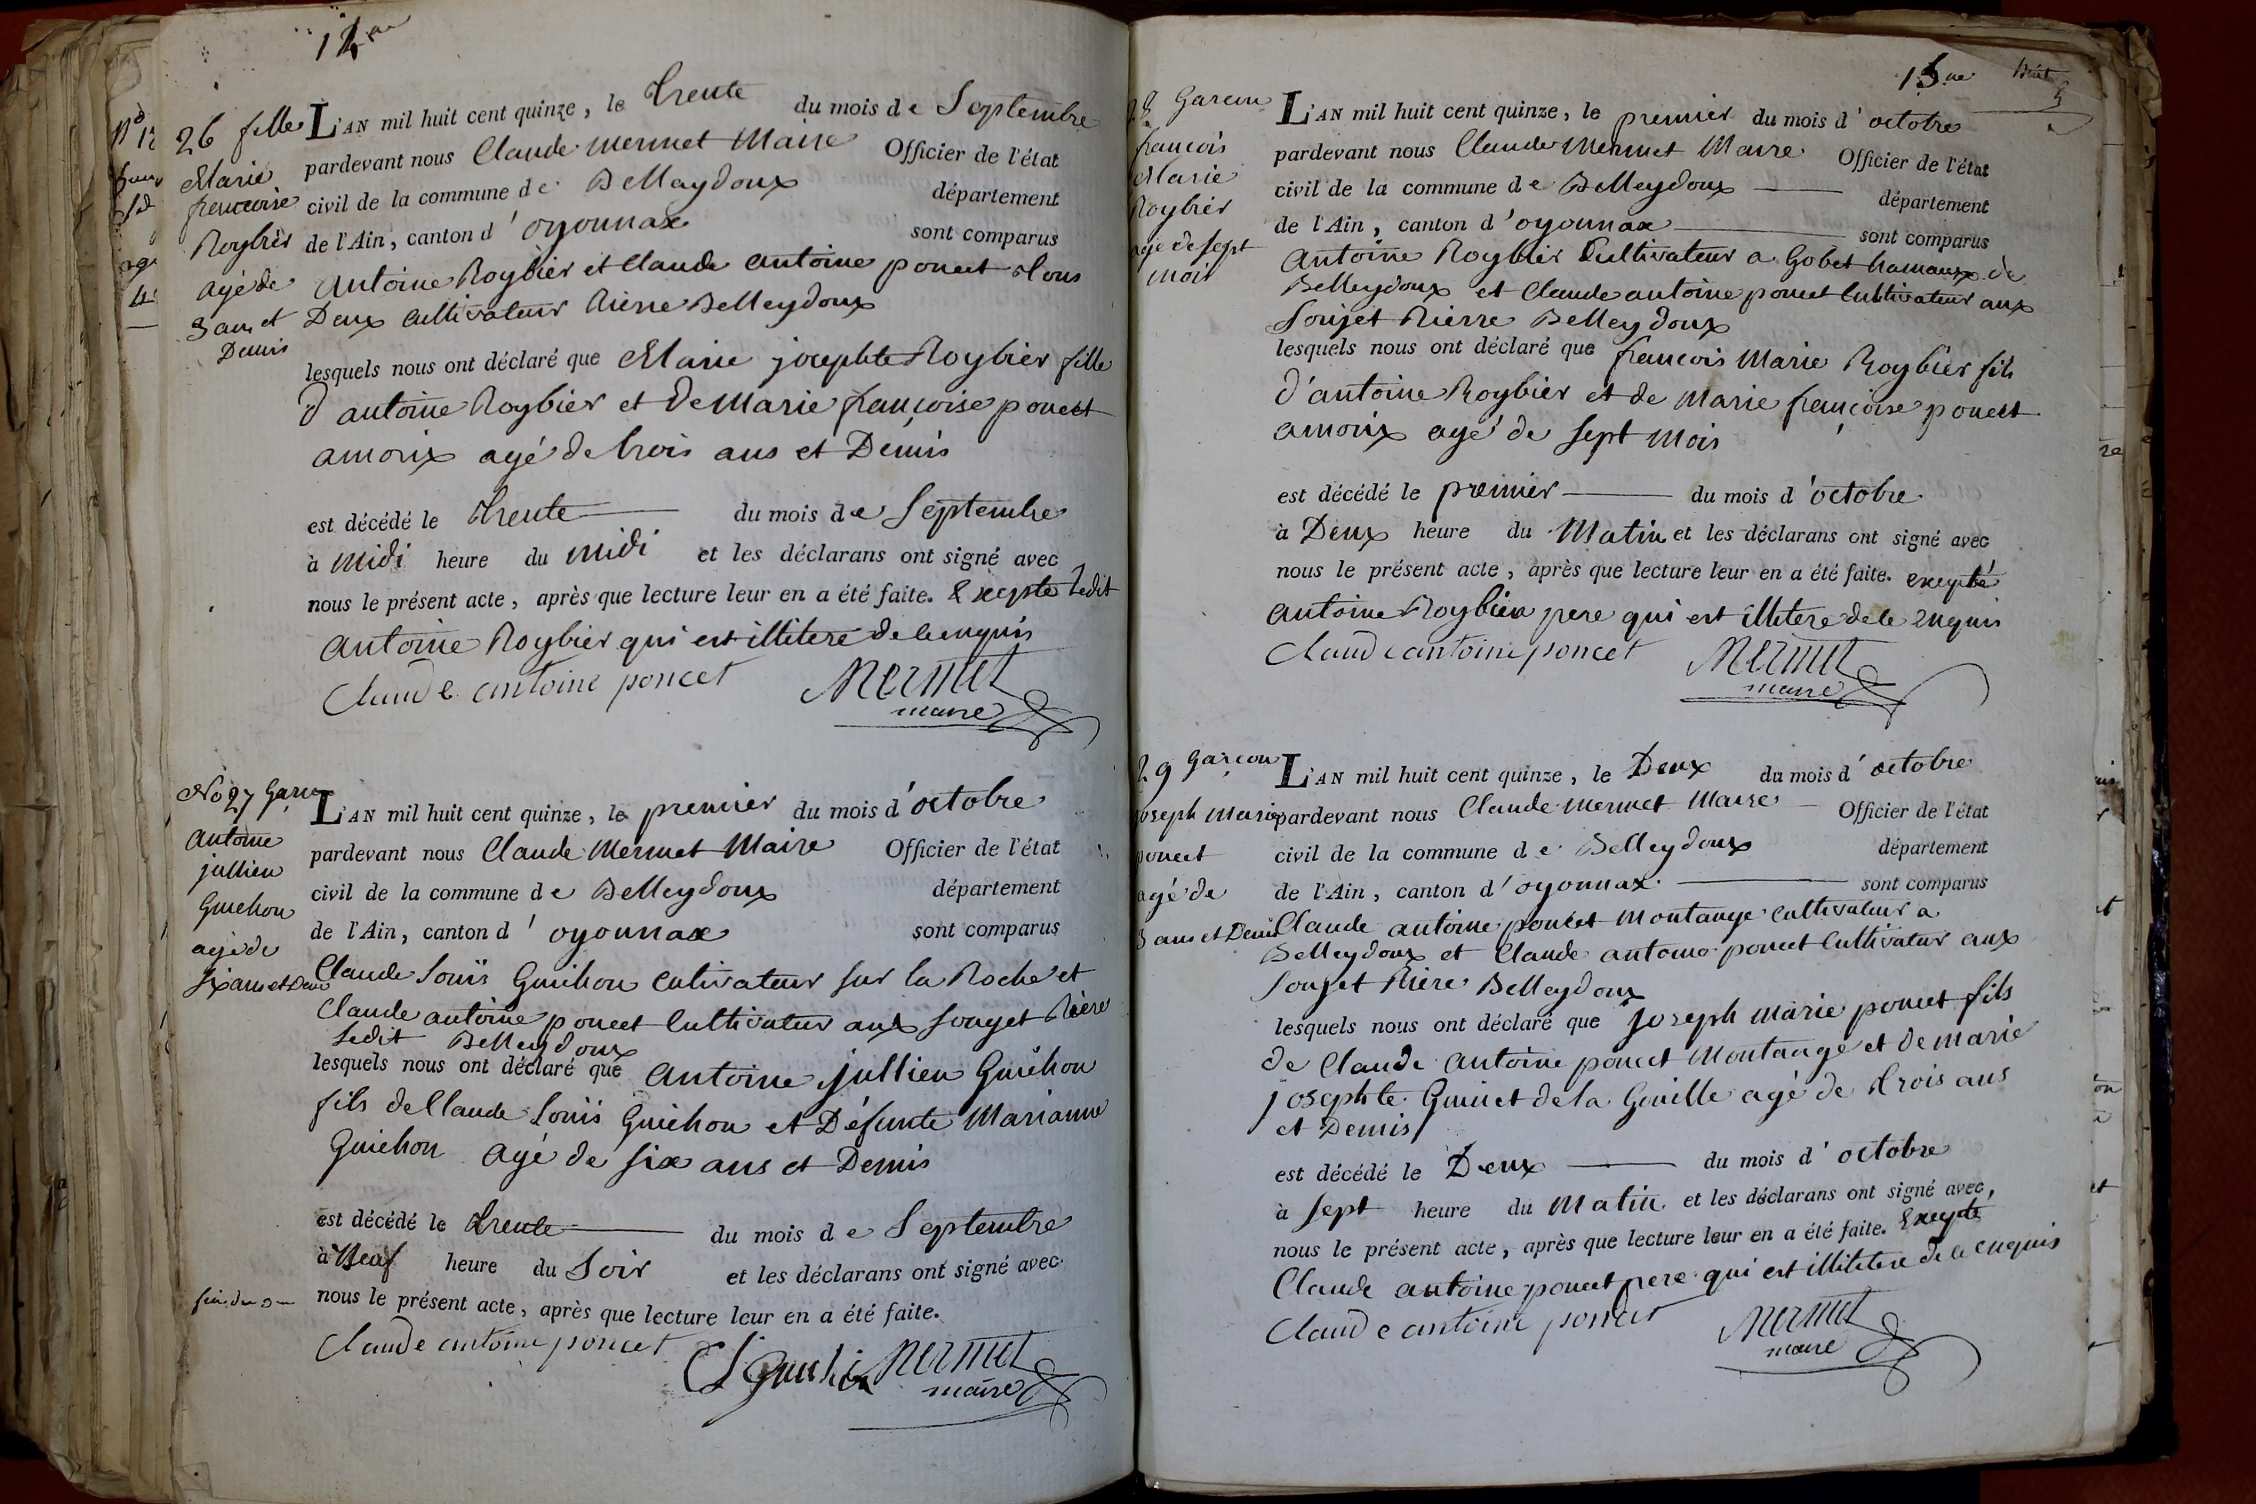 14
26 fille
Marie
francoise
Roybier
agé de
3 ans et
Demis
L'AN mil huit cent quinze, le trente du mois de Septembre
pardevant nous Claude mermet Maire Officier de l'état
civil de la commune de Belleydoux département
de l'Ain, canton d'oyonnax sont comparus
antoine Roybier et Claude antoine poncet tous
Deux cultivateur Rierre Belleydoux
lesquels nous ont déclaré que Marie josephte Roybier fille
d'antoine Roybier et de Marie françoise poncet
amorix agé de trois ans et Demis
est décédé le trente du mois de Septembre
à midi heure du midi et les déclarans ont signé avec
nous le présent acte, après que lecture leur en a été faite. Excepte ledit
antoine Roybier qui est illitere de le enquis
Claude antoine poncet Mermet
maire
No 27 Garçon
antoine
jullien
Guichon
agé de
six ans et Demi
L'AN mil huit cent quinze, le premier du mois d'octobre
pardevant nous Claude Mermet Maire Officier de l'état
civil de la commune de Belleydoux département
de l'Ain, canton d'oyonnax sont comparus
Claude Louis Guichon cutivateur sur la Roche et
Claude antoine poncet Cultivateur aux souget Rière
ledit Belleydoux
lesquels nous ont déclaré que antoine jullien Guichon
fils de Claude Louis Guichon et Défunte Marianne
Guichon agé de six ans et Demis
est décédé le trente du mois de Septembre
à Neuf heure du Soir et les déclarans ont signé avec
nous le présent acte, après que lecture leur en a été faite.
Claude antoine poncet
Mermet
maire
15
28 Garçon
francois
Marie
Roybier
age de sept
mois
L'AN mil huit cent quinze, le premier du mois d'octobre
pardevant nous Claude Mermet Maire Officier de l'état
civil de la commune de Belleydoux département
de l'Ain, canton d'oyonnax sont comparus
antoine Roybier Cultivateur a Gobet hamaux de
Belleydoux et Claude antoine poncet Cultivateur aux
Soujet Rierre Belleydoux
lesquels nous ont déclaré que françois Marie Roybier fils
d'antoine Roybier et de Marie françoise poncet
amorix agé de sept mois
est décédé le premier du mois d'octobre
à Deux heure du Matin et les déclarans ont signé avec
nous le présent acte, après que lecture leur en a été faite. excepté
antoine Roybier pere qui est illitere de le enquis
Claude antoine poncet Mermet
maire
29 Garçon
joseph Marie
poncet
agé de
3 ans et Demi
L'AN mil huit cent quinze, le Deux du mois d'octobre
pardevant nous Claude mermet Maire Officier de l'état
civil de la commune de Belleydoux département
de l'Ain, canton d'oyonnax sont comparus
Claude antoine poncet Montange cultivateur a
Belleydoux et Claude antoine poncet Cultivateur aux
Soujet Rière Belleydoux
lesquels nous ont déclaré que joseph marie poncet fils
de Claude antoine poncet Montange et de marie
josephte Guinet de la Gouille agé de trois ans
et Demis
est décédé le Deux du mois d'octobre
à sept heure du Matin et les déclarans ont signé avec
nous le présent acte, après que lecture leur en a été faite. Excepte
Claude antoine poncet pere qui est illitere de le enquis
Claude antoine poncet Mermet
maire